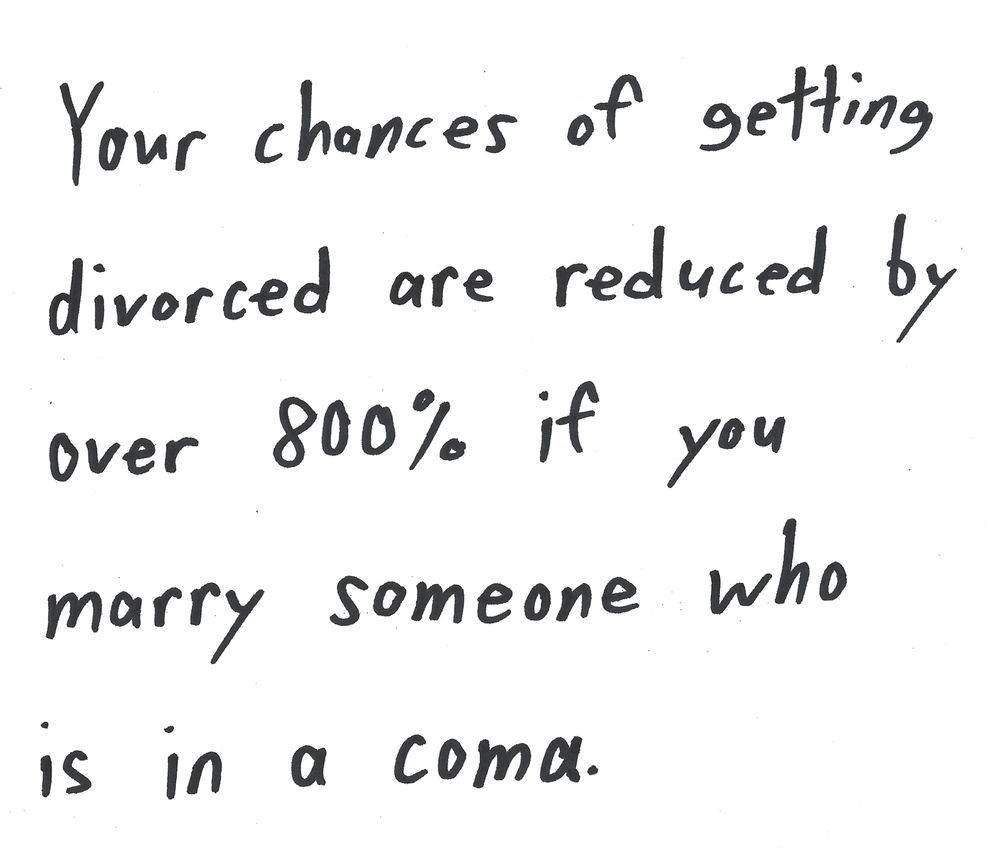 Your chances of getting
divorced are reduced by
over 800% if you
marry someone who
is in a coma.